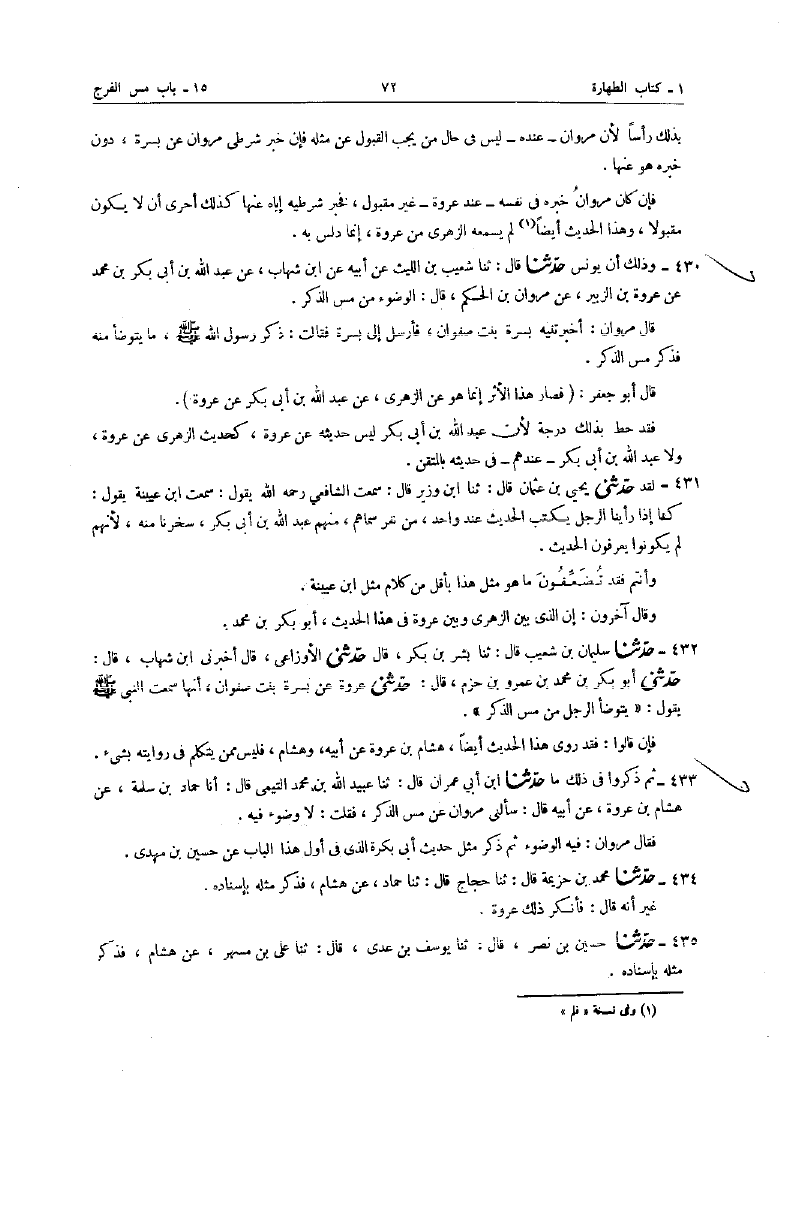 ١ ـ كتاب الطهارة ٧٢ ١٥ ـ باب مس الفرج
بذلك رأساً لأن مروان ـ عنده ـ ليس فى حال من يجب القبول عن مثله فإن خبر شرطى مروان عن بسرة ، دون
خبره هو عنها .
فإن كان مروان ُ خبره فى نفسه ـ عند عروة ـ غير مقبول ، فخبر شرطيه إياه عنها كذلك أحرى أن لا يكون
مقبولا ، وهذا الحديث أيضاً(١) لم يسمعه الزهرى من عروة ، إنما دلس به .
٤٣٠ ـ وذلك أن يونس حدّثنا قال : ثنا شعيب بن الليث عن أبيه عن ابن شهاب ، عن عبد الله بن أبى بكر بن محمد
عن عروة بن الزبير ، عن مروان بن الحكم ، قال : الوضوء من مس الذكر .
قال مروان : أخبرتنيه بسرة بنت صفوان ، فأرسل إلى بسرة فقالت : ذكر رسول الله ﷺ ، ما يتوضأ منه
فذكر مس الذكر .
قال أبو جعفر : ( فصار هذا الأثر إنما هو عن الزهرى ، عن عبد الله بن أبى بكر عن عروة ) .
فقد حط بذلك درجة لأن عبد الله بن أبى بكر ليس حديثه عن عروة ، كحديث الزهرى عن عروة ،
ولا عبد الله بن أبى بكر ـ عندهم ـ فى حديثه بالمتقن .
٤٣١ ـ لقد حدّثنى يحيى بن عثمان قال : ثنا ابن وزير قال : سمعت الشافعي رحمه الله يقول : سمعت ابن عيينة يقول :
كنا إذا رأينا الرجل يكتب الحديث عند واحد ، من نفر سماهم ، منهم عبد الله بن أبى بكر ، سخرنا منه ، لأنهم
لم يكونوا يعرفون الحديث .
وأنتم فقد تُضَعِّفُونَ ما هو مثل هذا بأقل من كلام مثل ابن عيينة .
وقال آخرون : إن الذى بين الزهرى وبين عروة فى هذا الحديث ، أبو بكر بن محمد .
٤٣٢ ـ حدّثنا سليمان بن شعيب قال : ثنا بشر بن بكر ، قال حدّثنى الأوزاعى ، قال أخبرنى ابن شهاب ، قال :
حدّثنى أبو بكر بن محمد بن عمرو بن حزم ، قال : حدّثنى عروة عن بسرة بنت صفوان ، أنها سمعت النبى ﷺ
يقول : « يتوضأ الرجل من مس الذكر » .
فإن قالوا : فقد روى هذا الحديث أيضاً ، هشام بن عروة عن أبيه، وهشام ، فليس ممن يتكلم فى روايته بشىء .
٤٣٣ ـ ثم ذكروا فى ذلك ما حدّثنا ابن أبي عمران قال : ثنا عبيد الله بن محمد التيمى قال : أنا حماد بن سلمة ، عن
هشام بن عروة ، عن أبيه قال : سألنى مروان عن مس الذكر ، فقلت : لا وضوء فيه .
فقال مروان : فيه الوضوء ثم ذكر مثل حديث أبى بكرة الذى فى أول هذا الباب عن حسين بن مهدى .
٤٣٤ ـ حدّثنا محمد بن خزيمة قال : ثنا حجاج قال : ثنا حماد ، عن هشام ، فذكر مثله بإسناده .
غير أنه قال : فأنكر ذلك عروة .
٤٣٥ ـ حدّثنا حسين بن نصر ، قال : ثنا يوسف بن عدى ، قال : ثنا على بن مسهر ، عن هشام ، فذكر
مثله بإسناده .
(١) وفى نسخة « فلم »